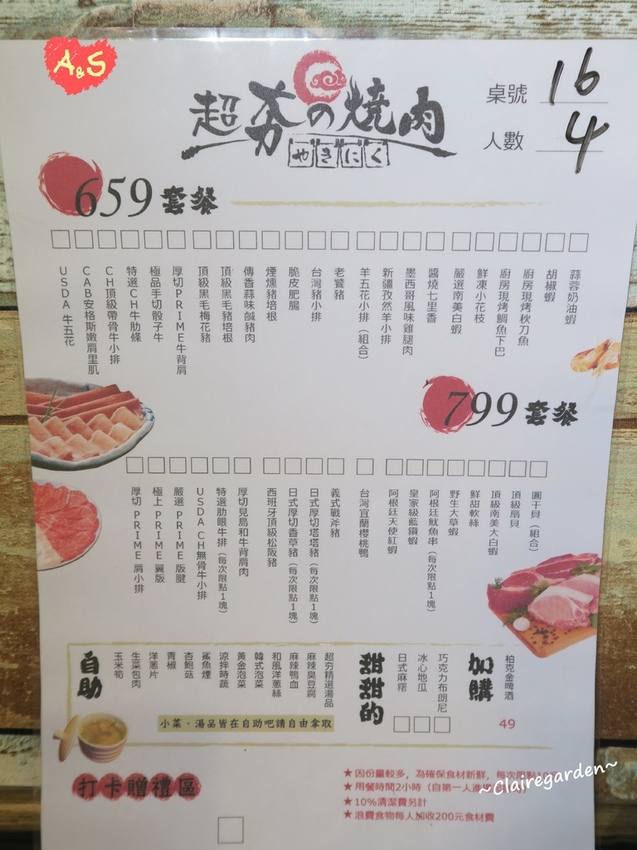 A&S
超夯の燒肉
やきにく
桌號 16
人數 4
659 套餐
蒜蓉奶油蝦
胡椒蝦
廚房現烤秋刀魚
廚房現烤鯛魚下巴
鮮凍小花枝
嚴選南美白蝦
醬燒七里香
墨西哥風味雞腿肉
新疆孜然羊小排
羊五花小排(組合)
老饕豬
台灣豬小排
脆皮肥腸
煙燻豬培根
傳香蒜味鹹豬肉
頂級黑毛豬培根
頂級黑毛梅花豬
厚切PRIME牛背肩
極品手切骰子牛
特選CH牛肋條
CH頂級帶骨牛小排
CAB安格斯嫩肩里肌
USDA 牛五花
799 套餐
圓干貝(組合)
頂級扇貝
頂級南美大白蝦
鮮甜軟絲
野生大草蝦
阿根廷魷魚串(每次限點1塊)
皇家級藍鑽蝦
阿根廷天使紅蝦
台灣宜蘭櫻桃鴨
義式戰斧豬
日式厚切塔塔豬(每次限點1塊)
日式厚切香草豬(每次限點1塊)
西班牙頂級松阪豬
厚切見島和牛背肩肉
特選肋眼牛排(每次限點1塊)
USDA CH無骨牛小排
嚴選 PRIME 版腱
極上 PRIME 翼版
厚切 PRIME 肩小排
加購
柏克金啤酒
49
甜甜的
巧克力布朗尼
冰心地瓜
日式麻糬
自助
超夯精選湯品
麻辣臭豆腐
麻辣鴨血
和風洋蔥絲
韓式泡菜
黃金泡菜
涼拌時蔬
鯊魚煙
杏鮑菇
青椒
洋蔥片
生菜包肉
玉米筍
小菜・湯品皆在自助吧請自由拿取
打卡贈禮區
★因份量較多，為確保食材新鮮，每次限點
★用餐時間2小時(自第一人進
★10%清潔費另計
★浪費食物每人加收200元食材費
~Clairegarden~